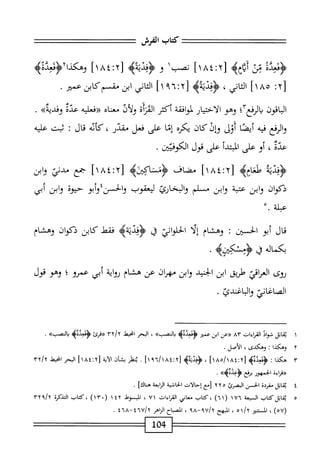 كتاب الفرش
﴿فَعِدَّةٌ مِّنْ أَيَّامٍ﴾ [٢:١٨٤] نصب١ و ﴿فِدْيَةٌ﴾ [٢:١٨٤] وهكذا٢ ﴿فَعِدَّةٌ﴾
[٢: ١٨٥] الثاني ، ﴿فِدْيَةٌ﴾ [٢:١٩٦] الثاني ابن مقسم كابن عمير .
الباقون بالرفع٣؛ وهو الاختيار لموافقة أكثر القرّاء ولأنّ معناه «فعليه عدّةٌ وفديةٌ» .
والرفع فيه أيضًا أَوْلى وإنْ كان يكره إمّا على فعل مقدّر ، كأنّه قال : ثبت عليه
عدّةٌ ، أو على المبتدأ على قول الكوفيّين .
﴿فِدْيَةُ طَعَامِ﴾ [٢:١٨٤] مضاف ﴿مَسَاكِينَ﴾ [٢:١٨٤] جمع مدنيّ وابن
ذكوان وابن عتبة وابن مسلم والبخاريّ ليعقوب والحسن٤ وأبو حيوة وابن أبي
عبلة .٥
قال أبو الحسين : وهشام إلّا الحلوانيّ في ﴿فِدْيَة﴾ فقط كابن ذكوان وهشام
بكماله في ﴿مِسْكِينٍ﴾ .
روى العراقيّ طريق ابن الجنيد وابن مهران عن هشام رواية أبي عمرو ؛ وهو قول
الصاغانيّ والباغنديّ .
١ يُقابل شواذّ القراءات ٨٣ «عن ابن عمير ﴿فَعِدَّةً﴾ بالنصب» ، البحر المحيط ٣٢/٢ «قرئ ﴿فَعِدَّةً﴾ بالنصب» .
٢ وهكذا : وهكذى ، الأصل .
٣ هكذا : ﴿فَعِدَّةٌ﴾ [١٨٥/١٨٤:٢] ، ﴿فِدْيَةٌ﴾ [١٩٦/١٨٤:٢] . يُنظر بشأن الآية [٢:١٨٤] البحر المحيط ٣٢/٢
«قراءة الجمهور برفع ﴿فَعِدَّةٌ﴾» .
٤ يُقابل مفردة الحسن البصريّ ٢٢٥ [مع إحالات الحاشية الرابعة هناك] .
٥ يُقابل كتاب السبعة ١٧٦ (٦١) ، كتاب معاني القراءات ٧١ ، المبسوط ١٤٢ (١٣٠) ، كتاب التذكرة ٣٢٩/٢
(٥٧) ، المستنير ٥١/٢ ، المبهج ٩٧/٢-٩٨ ، المصباح الزاهر ٤٦٧/٢-٤٦٨ .
104